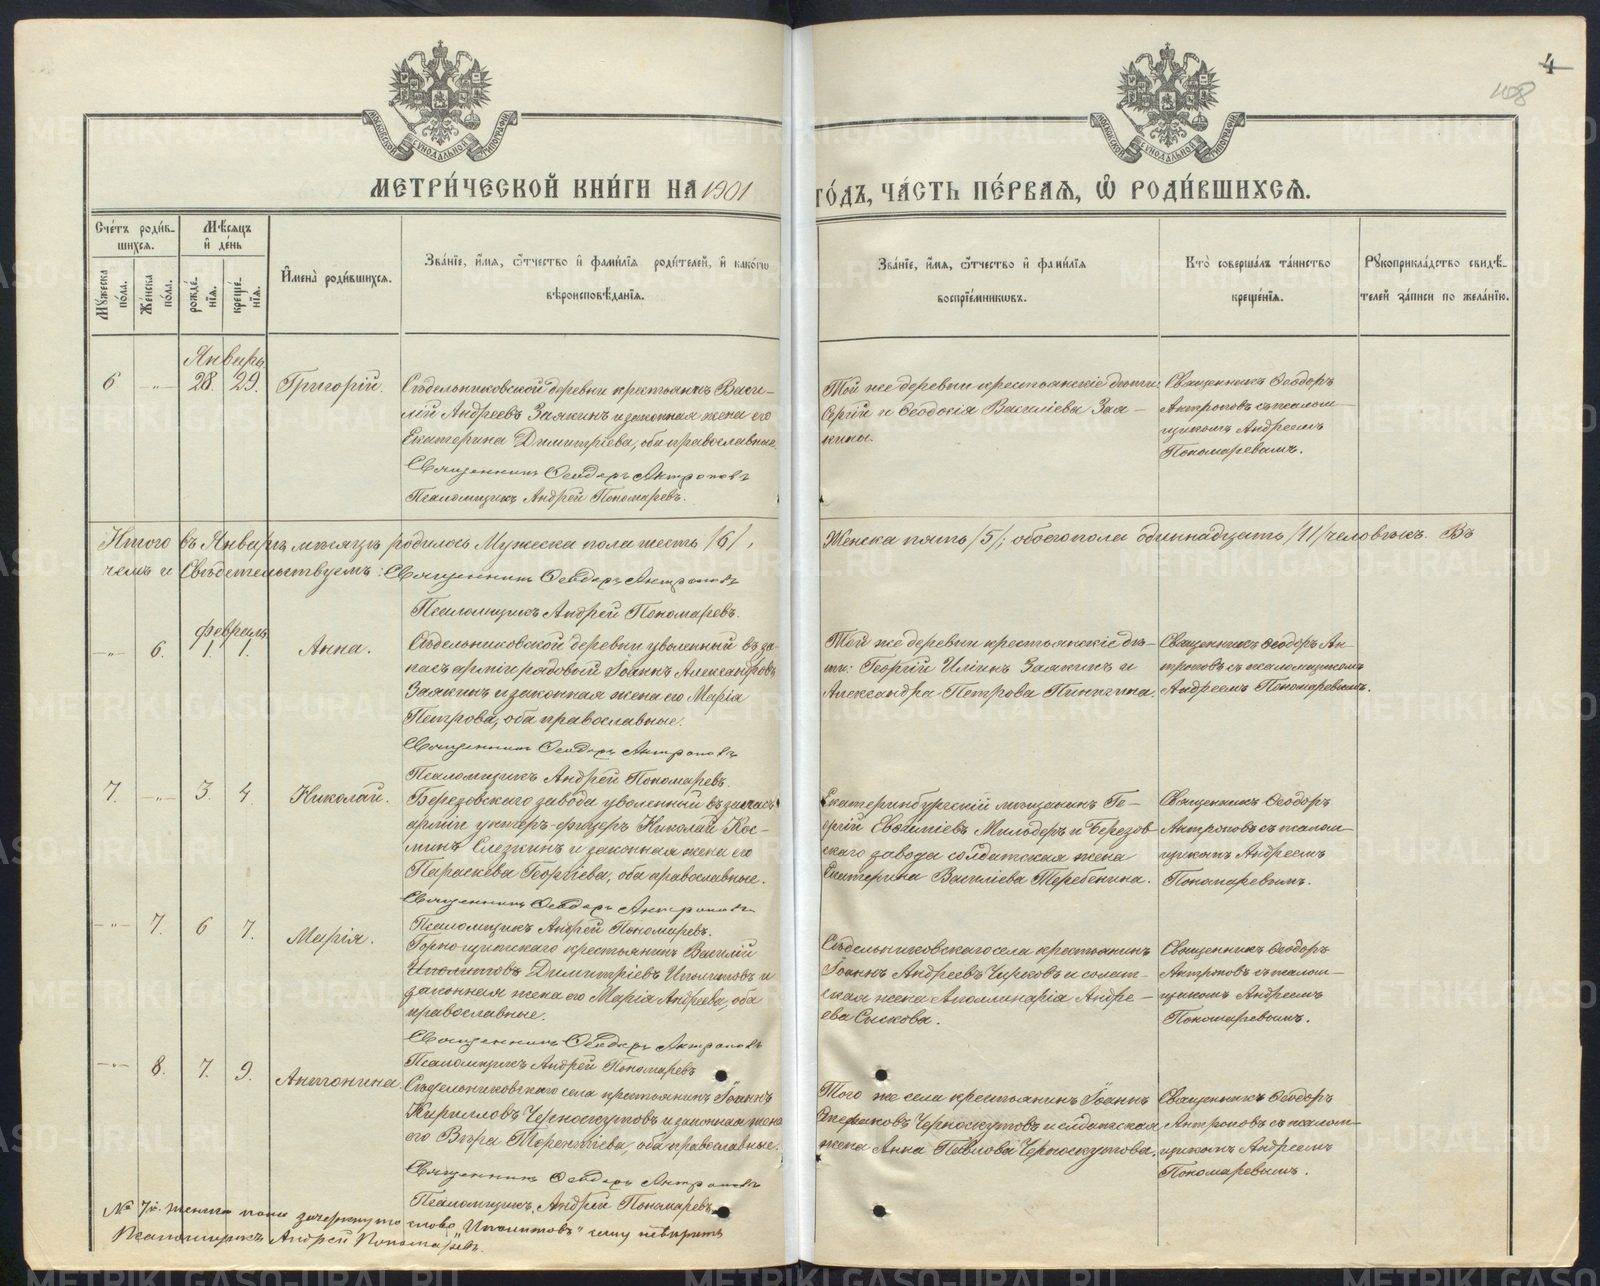 4
408
МЕТРИ́ЧЕСКОЙ КНИ́ГИ НА 1901
ГО́ДЪ, ЧА́СТЬ ПЕ́РВАЯ, Ѡ РОДИ́ВШИХСЯ.
МОСКОВСКОЙ СѴНОДАЛЬНОЙ ТИПОГРАФІИ
МОСКОВСКОЙ СѴНОДАЛЬНОЙ ТИПОГРАФІИ
Сче́тъ роди́в-
шихся.
Мѣ́сяцъ
и де́нь
Мужеска по́ла.
Же́нска по́ла.
рожде́-
нїя.
креще́-
нїя.
Имена̀ роди́вшихся.
Зва́нїе, и́мя, ѻ҆́тчество и фами́лїя роди́телей, и како́гѡ
вѣроисповѣ́данїя.
Зва́нїе, и́мя, ѻ҆́тчество и фами́лїя
воспрїе́мниковъ.
Кто̀ соверша́лъ та́инство
креще́нїя.
Рукоприкла́дство свидѣ́-
телей за́писи по жела́нїю.
Январь
6 —„— 28. 29. Григорій.
Сѣдельниковской деревни крестьянинъ Васи-
лій Андреевъ Заякинъ и законная жена его
Екатерина Димитріева, оба православные.
Священникъ Ѳеодоръ Антроповъ
Псаломщикъ Андрей Пономаревъ.
Той же деревни крестьянскіе дѣти:
Сергій и Ѳеодосія Василіевы Зая-
кины.
Священникъ Ѳеодоръ
Антроповъ съ псалом-
щикомъ Андреемъ
Пономаревымъ.
Итого въ Январѣ мѣсяцѣ родилось Мужеска пола шесть /6/, Женска пять /5/; обоего пола одиннадцать /11/ человѣкъ. Въ
чемъ и Свѣдетельствуемъ: Священникъ Ѳеодоръ Антроповъ
Псаломщикъ Андрей Пономаревъ.
Февраль
—„— 6. 1. 1. Анна.
Сѣдельниковской деревни уволенный въ за-
пасъ арміи рядовой Іоаннъ Александровъ
Заякинъ и законная жена его Марія
Петрова, оба православные.
Священникъ Ѳеодоръ Антроповъ
Псаломщикъ Андрей Пономаревъ.
Той же деревни крестьянскіе дѣ-
ти: Георгій Илiинъ Заякинъ и
Александра Петрова Пинигина.
Священникъ Ѳеодоръ Ан-
троповъ съ псаломщикомъ
Андреемъ Пономаревымъ.
7. —„— 3. 4. Николай.
Березовскаго завода уволенный въ запасъ
арміи унтеръ-офицеръ Николай Кос-
минъ Слезкинъ и законная жена его
Параскева Георгіева, оба православные.
Священникъ Ѳеодоръ Антроповъ
Псаломщикъ Андрей Пономаревъ.
Екатеринбургскій мѣщанинъ Ге-
оргій Евѳиміевъ Мильдеръ и Березов-
скаго завода солдатская жена
Екатерина Василіева Теребенина.
Священникъ Ѳеодоръ
Антроповъ съ псалом-
щикомъ Андреемъ
Пономаревымъ.
—„— 7. 6 7. Марія.
Горнощитскаго крестьянинъ Василій
Ипполитовъ Димитріевъ Ипполитовъ и
законная жена его Марія Андреева, оба
православные.
Священникъ Ѳеодоръ Антроповъ
Псаломщикъ Андрей Пономаревъ
Сѣдельниковскаго села крестьянинъ
Іоаннъ Андреевъ Чирковъ и солдат-
ская жена Аполлинарія Андре-
ева Сыскова.
Священникъ Ѳеодоръ
Антроповъ съ псалом-
щикомъ Андреемъ
Пономаревымъ.
—„— 8. 7. 9. Антонина.
Сѣдельниковскаго села крестьянинъ Іоаннъ
Кирилловъ Черноскутовъ и законная жена
его Вѣра Терентіева, оба православные.
Священникъ Ѳеодоръ Антроповъ
Псаломщикъ, Андрей Пономаревъ
Того же села крестьянинъ Іоаннъ
Черноскутовъ и солдатская
жена Анна Павлова Черноскутова.
Священникъ Ѳеодоръ
Антроповъ съ псалом-
щикомъ Андреемъ
Пономаревымъ.
№ 7й женска пола зачеркнуто слово „Ипполитовъ" чему и вѣрить
Псаломщикъ Андрей Пономаревъ.
METRIKI.GASO-URAL.RU